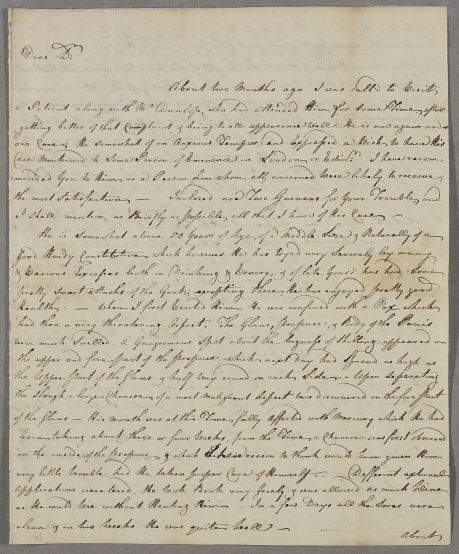 Dear Dr.
About two Months ago I was called to Visit
a Patient along with Mr Dunlop, who had attended Him for some Time, after
getting better of that Complaint & being to all appearance well. He is now again under
our Care, & He somewhat of an Anxious Temper and Expressed a Wish to have His
Case mentioned to Some Person of Eminence in London or Edinr. I have recom-
mended You to Him, as a Person from whom all concerned were likely to receive
the most Satisfaction — Inclosed are Two Guineas for Your Trouble, and
I shall mention as Briefly as possible, all that I know of His Case —
He is somewhat above 50 Years of Age, of a Middle Size & Naturally of a
Good Hardy Constitution which however He has tryed very Severely by many
& Various Excesses both in Drinking & Venery, & of late Years has had Some
pretty Smart attacks of the Gout, excepting these He has enjoyed pretty good
Health. — When I first Visited Him He was confined with a Pox which
had then a very threatening Aspect. The Glans, prepuce, & Body of the Penis
were much Swelled. A Gangrenous Spot about the bigness of Shilling appeared on
the upper and fore part of the prepuce, which next day had Spread as high as
the Upper part of the Glans & half way round on each Side — Upon Separating
the Slough a large Chancre of a most Malignant Aspect was discovered on the fore part
of the Glans — His mouth was at this Time fully affected with Mercury which He had
been taking about three or four Weeks, from the Time a Chancre was first observed
on the inside of the prepuce, & which I have reason to think would have given Him
very little trouble, had He taken proper Care of Himself —. Different external
Applications were used. He took Bark very freely & was allowed as much Wine
as He would use without Heating Him — In a few Days all the Sores were
clean & in two Weeks He was quite well —
About